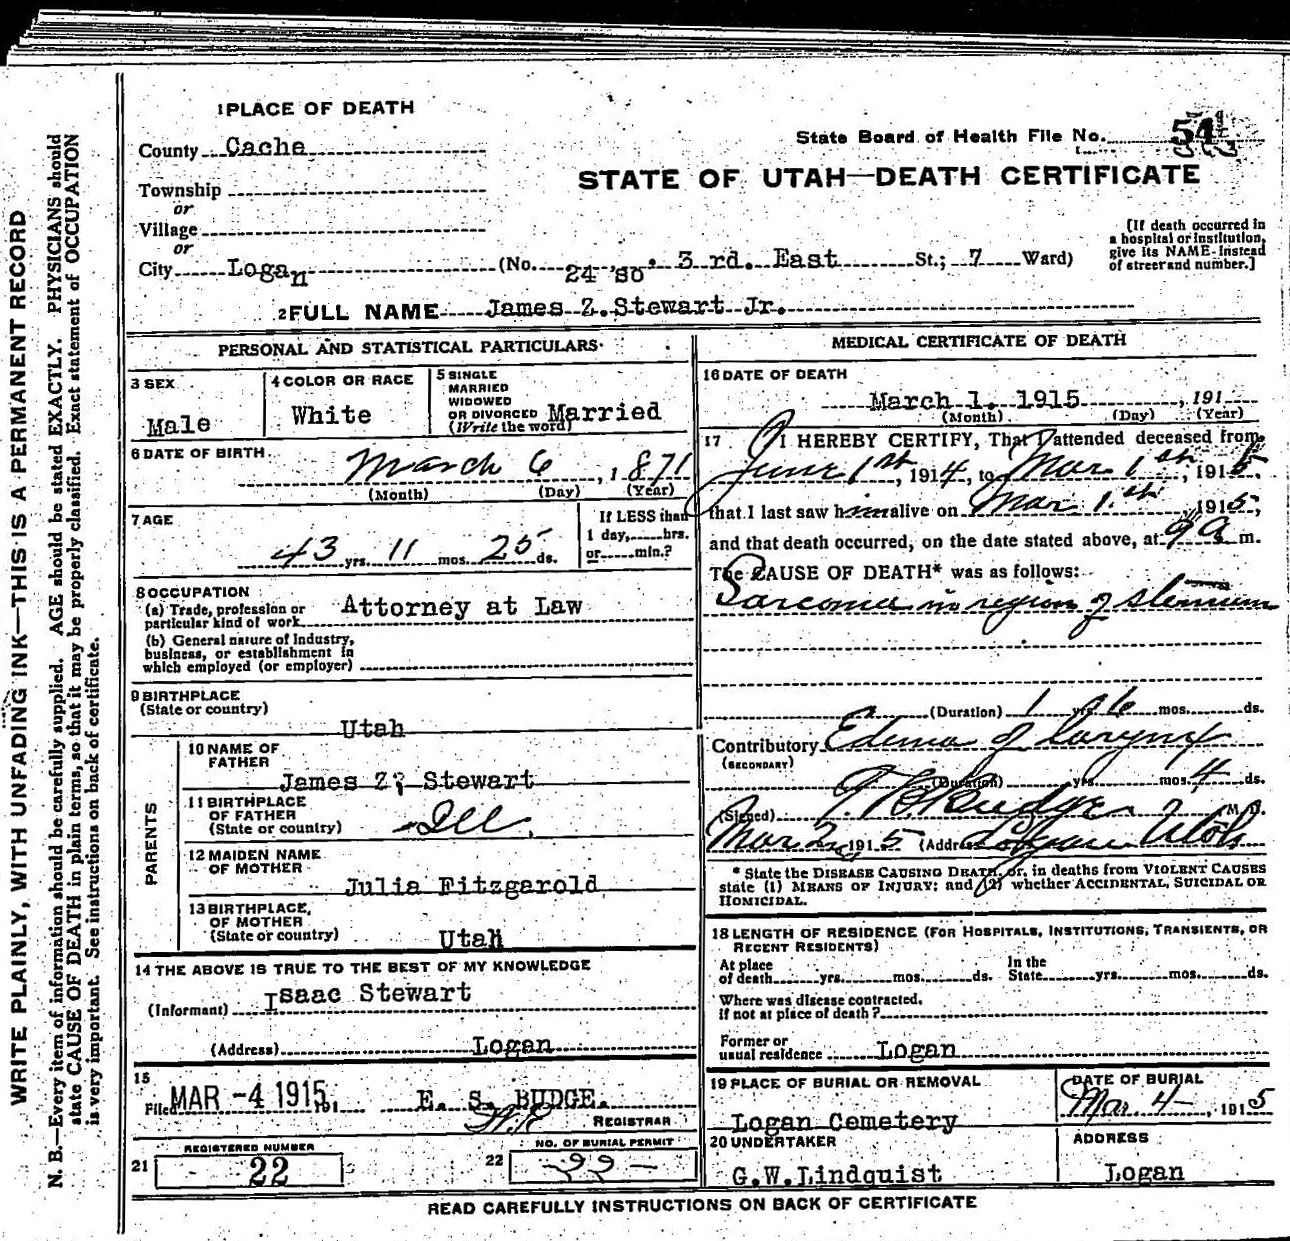 WRITE PLAINLY, WITH UNFADING INK—THIS IS A PERMANENT RECORD
N. B.—Every item of information should be carefully supplied. AGE should be stated EXACTLY. PHYSICIANS should
state CAUSE OF DEATH in plain terms, so that it may be properly classified. Exact statement of OCCUPATION
is very important. See instructions on back of certificate.
1 PLACE OF DEATH
State Board of Health File No. 54
County Cache
STATE OF UTAH—DEATH CERTIFICATE
Township
or
Village
or
City Logan (No. 24 so. 3 rd. East St.; 7 Ward)
[If death occurred in
a hospital or institution,
give its NAME instead
of street and number.]
2 FULL NAME James Z. Stewart Jr.
PERSONAL AND STATISTICAL PARTICULARS
3 SEX
Male
4 COLOR OR RACE
White
5 SINGLE
MARRIED
WIDOWED
OR DIVORCED Married
(Write the word)
6 DATE OF BIRTH
March 6, 1871
(Month) (Day) (Year)
7 AGE
43 yrs. 11 mos. 25 ds.
If LESS than
1 day, hrs.
or min.?
8 OCCUPATION
(a) Trade, profession or
particular kind of work Attorney at Law
(b) General nature of Industry,
business, or establishment in
which employed (or employer)
9 BIRTHPLACE
(State or country)
Utah
PARENTS
10 NAME OF
FATHER
James Z. Stewart
11 BIRTHPLACE
OF FATHER
(State or country) Ill.
12 MAIDEN NAME
OF MOTHER
Julia Fitzgarold
13 BIRTHPLACE,
OF MOTHER
(State or country) Utah
14 THE ABOVE IS TRUE TO THE BEST OF MY KNOWLEDGE
(Informant) Isaac Stewart
(Address) Logan
15
Filed MAR -4 1915, 191, E. S. BUDGE.
REGISTRAR
REGISTERED NUMBER
21 22
NO. OF BURIAL PERMIT
22 -22-
MEDICAL CERTIFICATE OF DEATH
16 DATE OF DEATH
March 1. 1915, 191
(Month) (Day) (Year)
17 I HEREBY CERTIFY, That I attended deceased from
June 1st, 1914, to Mar 1st, 1915
that I last saw him alive on Mar 1st, 1915,
and that death occurred, on the date stated above, at 9 a m.
The CAUSE OF DEATH* was as follows:
Sarcoma in region of sternum
(Duration) 1 yrs. 6 mos. ds.
Contributory Edema of larynx
(SECONDARY)
(Duration) yrs. mos. 4 ds.
(Signed) Budge, M. D.
Mar 2, 1915 (Address) Logan Utah
* State the DISEASE CAUSING DEATH, or, in deaths from VIOLENT CAUSES
state (1) MEANS OF INJURY; and (2) whether ACCIDENTAL, SUICIDAL OR
HOMICIDAL.
18 LENGTH OF RESIDENCE (FOR HOSPITALS, INSTITUTIONS, TRANSIENTS, OR
RECENT RESIDENTS)
At place of death yrs. mos. ds. In the State yrs. mos. ds.
Where was disease contracted,
if not at place of death?
Former or
usual residence Logan
19 PLACE OF BURIAL OR REMOVAL
Logan Cemetery
DATE OF BURIAL
Mar 4-, 1915
20 UNDERTAKER
G.W.Lindquist
ADDRESS
Logan
READ CAREFULLY INSTRUCTIONS ON BACK OF CERTIFICATE